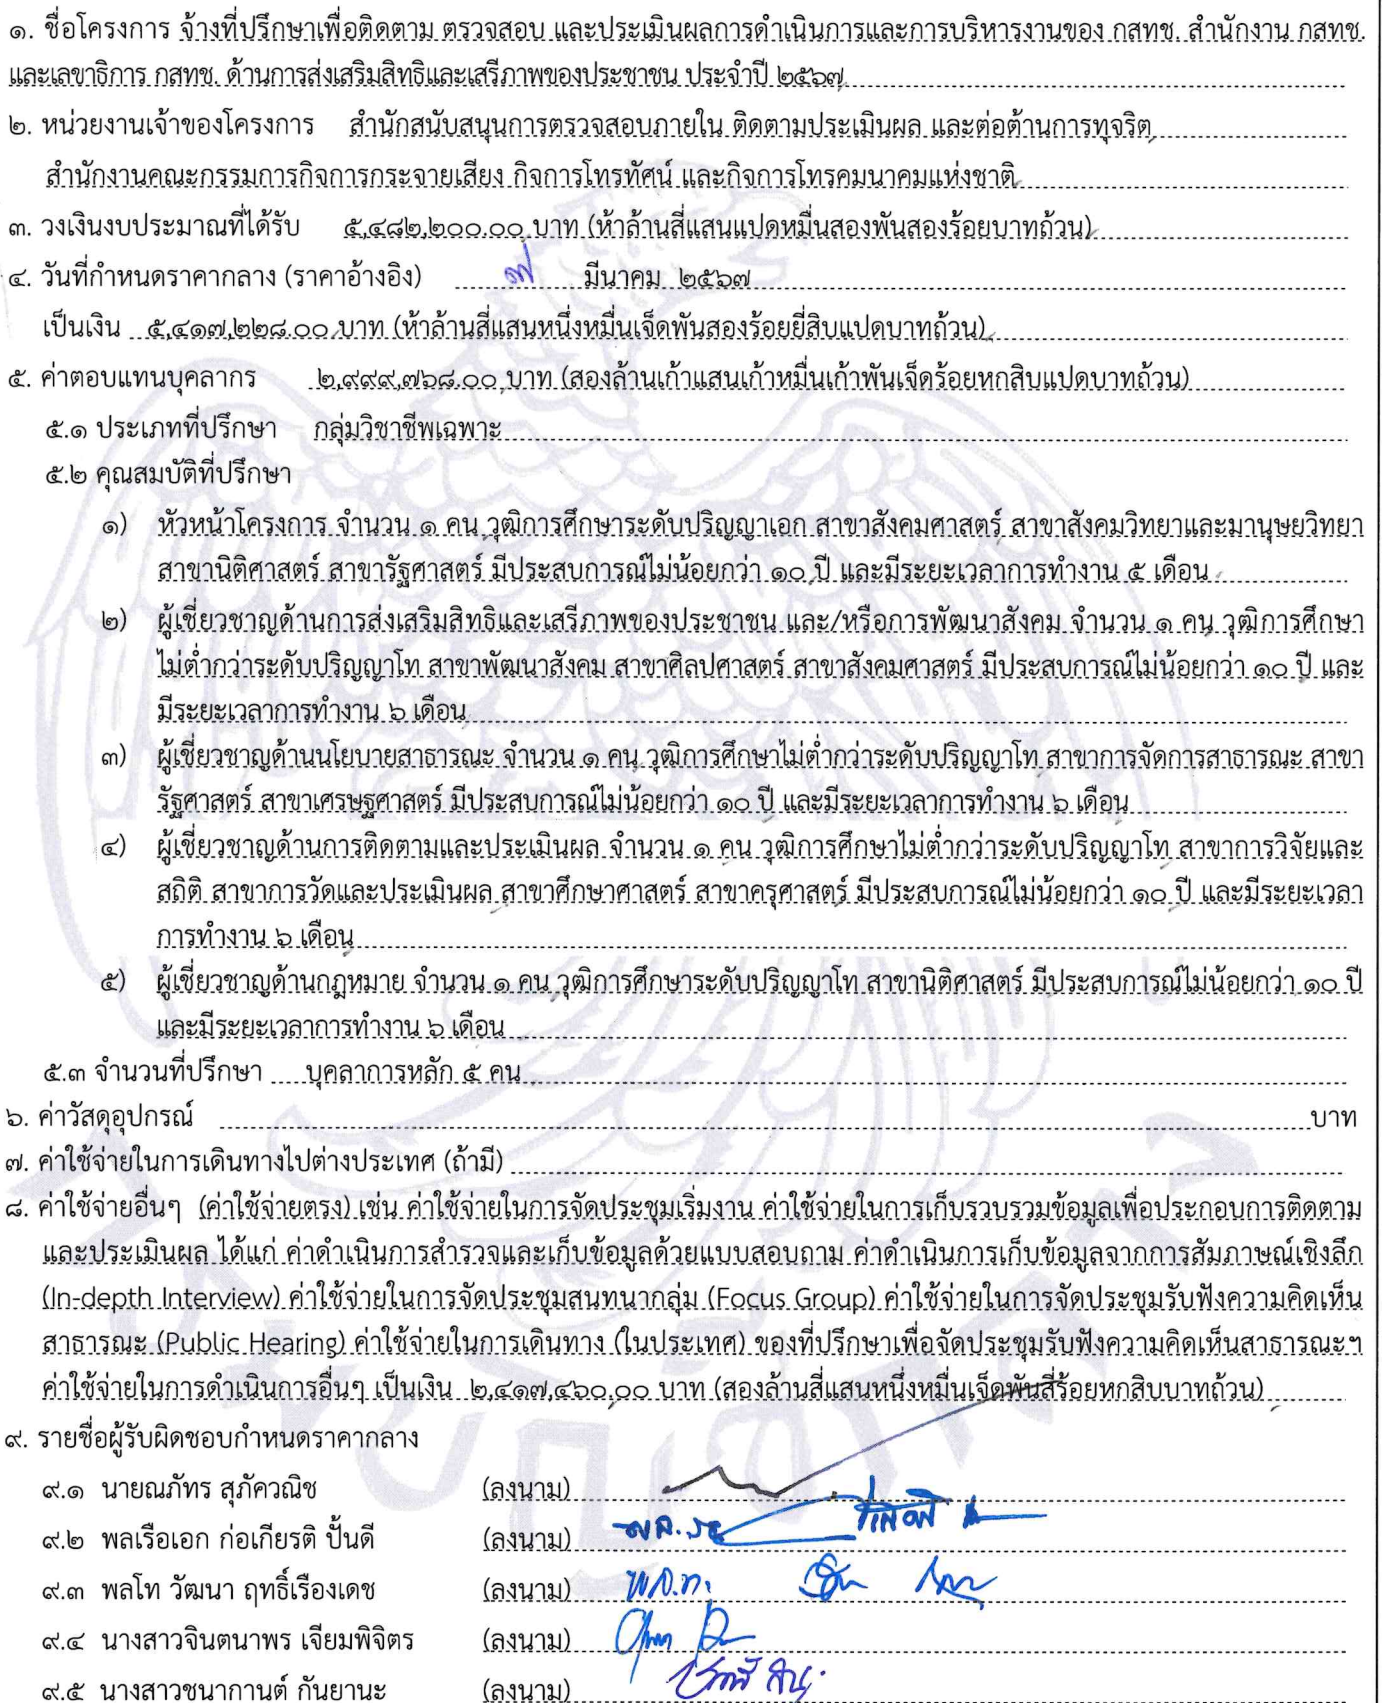 ๑. ชื่อโครงการ จ้างที่ปรึกษาเพื่อติดตาม ตรวจสอบ และประเมินผลการดำเนินการและการบริหารงานของ กสทช. สำนักงาน กสทช.
และเลขาธิการ กสทช. ด้านการส่งเสริมสิทธิและเสรีภาพของประชาชน ประจำปี ๒๕๖๗
๒. หน่วยงานเจ้าของโครงการ สำนักสนับสนุนการตรวจสอบภายใน ติดตามประเมินผล และต่อต้านการทุจริต
สำนักงานคณะกรรมการกิจการกระจายเสียง กิจการโทรทัศน์ และกิจการโทรคมนาคมแห่งชาติ
๓. วงเงินงบประมาณที่ได้รับ ๕,๔๘๒,๒๐๐.๐๐ บาท (ห้าล้านสี่แสนแปดหมื่นสองพันสองร้อยบาทถ้วน)
๔. วันที่กำหนดราคากลาง (ราคาอ้างอิง) ๗ มีนาคม ๒๕๖๗
เป็นเงิน ๕,๔๑๗,๒๒๘.๐๐ บาท (ห้าล้านสี่แสนหนึ่งหมื่นเจ็ดพันสองร้อยยี่สิบแปดบาทถ้วน)
๕. ค่าตอบแทนบุคลากร ๒,๙๙๙,๗๖๘.๐๐ บาท (สองล้านเก้าแสนเก้าหมื่นเก้าพันเจ็ดร้อยหกสิบแปดบาทถ้วน)
๕.๑ ประเภทที่ปรึกษา กลุ่มวิชาชีพเฉพาะ
๕.๒ คุณสมบัติที่ปรึกษา
๑) หัวหน้าโครงการ จำนวน ๑ คน วุฒิการศึกษาระดับปริญญาเอก สาขาสังคมศาสตร์ สาขาสังคมวิทยาและมานุษยวิทยา
สาขานิติศาสตร์ สาขารัฐศาสตร์ มีประสบการณ์ไม่น้อยกว่า ๑๐ ปี และมีระยะเวลาการทำงาน ๕ เดือน
๒) ผู้เชี่ยวชาญด้านการส่งเสริมสิทธิและเสรีภาพของประชาชน และ/หรือการพัฒนาสังคม จำนวน ๑ คน วุฒิการศึกษา
ไม่ต่ำกว่าระดับปริญญาโท สาขาพัฒนาสังคม สาขาศิลปศาสตร์ สาขาสังคมศาสตร์ มีประสบการณ์ไม่น้อยกว่า ๑๐ ปี และ
มีระยะเวลาการทำงาน ๖ เดือน
๓) ผู้เชี่ยวชาญด้านนโยบายสาธารณะ จำนวน ๑ คน วุฒิการศึกษาไม่ต่ำกว่าระดับปริญญาโท สาขาการจัดการสาธารณะ สาขา
รัฐศาสตร์ สาขาเศรษฐศาสตร์ มีประสบการณ์ไม่น้อยกว่า ๑๐ ปี และมีระยะเวลาการทำงาน ๖ เดือน
๔) ผู้เชี่ยวชาญด้านการติดตามและประเมินผล จำนวน ๑ คน วุฒิการศึกษาไม่ต่ำกว่าระดับปริญญาโท สาขาการวิจัยและ
สถิติ สาขาการวัดและประเมินผล สาขาศึกษาศาสตร์ สาขาครุศาสตร์ มีประสบการณ์ไม่น้อยกว่า ๑๐ ปี และมีระยะเวลา
การทำงาน ๖ เดือน
๕) ผู้เชี่ยวชาญด้านกฎหมาย จำนวน ๑ คน วุฒิการศึกษาระดับปริญญาโท สาขานิติศาสตร์ มีประสบการณ์ไม่น้อยกว่า ๑๐ ปี
และมีระยะเวลาการทำงาน ๖ เดือน
๕.๓ จำนวนที่ปรึกษา บุคลาการหลัก ๕ คน
๖. ค่าวัสดุอุปกรณ์ บาท
๗. ค่าใช้จ่ายในการเดินทางไปต่างประเทศ (ถ้ามี)
๘. ค่าใช้จ่ายอื่นๆ (ค่าใช้จ่ายตรง) เช่น ค่าใช้จ่ายในการจัดประชุมเริ่มงาน ค่าใช้จ่ายในการเก็บรวบรวมข้อมูลเพื่อประกอบการติดตาม
และประเมินผล ได้แก่ ค่าดำเนินการสำรวจและเก็บข้อมูลด้วยแบบสอบถาม ค่าดำเนินการเก็บข้อมูลจากการสัมภาษณ์เชิงลึก
(In-depth Interview) ค่าใช้จ่ายในการจัดประชุมสนทนากลุ่ม (Focus Group) ค่าใช้จ่ายในการจัดประชุมรับฟังความคิดเห็น
สาธารณะ (Public Hearing) ค่าใช้จ่ายในการเดินทาง (ในประเทศ) ของที่ปรึกษาเพื่อจัดประชุมรับฟังความคิดเห็นสาธารณะฯ
ค่าใช้จ่ายในการดำเนินการอื่นๆ เป็นเงิน ๒,๔๑๗,๔๖๐.๐๐ บาท (สองล้านสี่แสนหนึ่งหมื่นเจ็ดพันสี่ร้อยหกสิบบาทถ้วน)
๙. รายชื่อผู้รับผิดชอบกำหนดราคากลาง
๙.๑ นายณภัทร สุภัควณิช (ลงนาม)
๙.๒ พลเรือเอก ก่อเกียรติ ปั้นดี (ลงนาม)
๙.๓ พลโท วัฒนา ฤทธิ์เรืองเดช (ลงนาม) พล.ท.
๙.๔ นางสาวจินตนาพร เจียมพิจิตร (ลงนาม)
๙.๕ นางสาวชนากานต์ กันยานะ (ลงนาม)